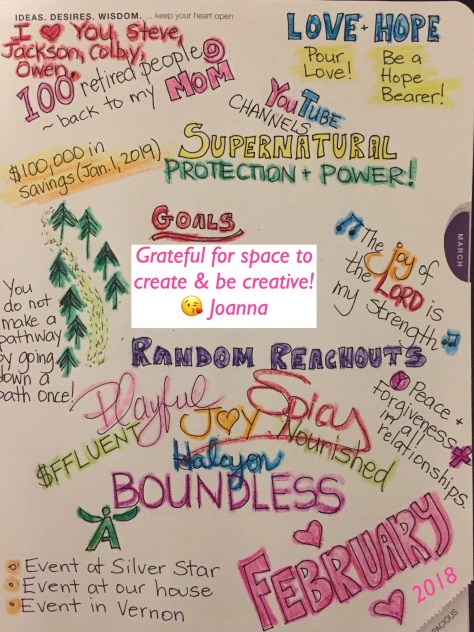 IDEAS. DESIRES. WISDOM. ... keep your heart open
I ♥ You, Steve,
Jackson, Colby,
Owen.
100 retired people @
~ back to my MOM
LOVE + HOPE
Pour
Love!
Be a
Hope
Bearer!
YouTube
CHANNELS
$100,000 in
savings (Jan. 1, 2019)
SUPERNATURAL
PROTECTION + POWER!
GOALS
MARCH
Grateful for space to
create & be creative!
😘 Joanna
The joy of
the LORD is
my strength.
You
do not
make a
pathway
by going
down a
path once!
RANDOM REACHOUTS
Peace +
Forgiveness
in all
relationships.
Playful
Spicy
JOY
Nourished
$FFLUENT
Halcyon
BOUNDLESS
A
Event at Silver Star
Event at our house
Event in Vernon
FEBRUARY
2018
SPACIOUS